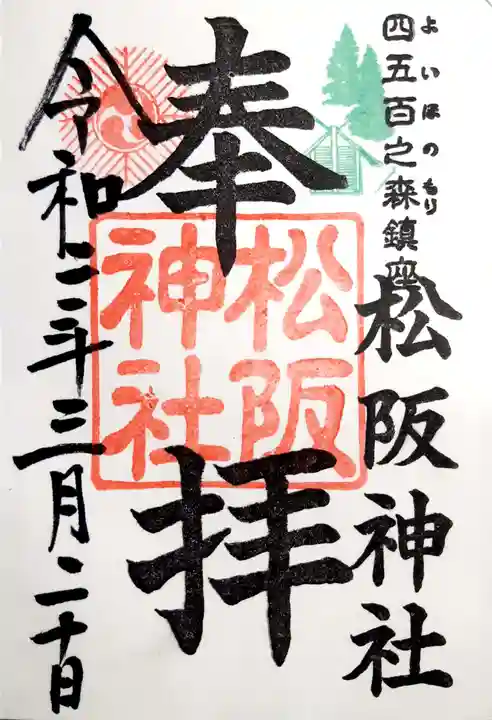 よいほのもり
四五百之森鎮座
松阪神社
奉拝
松阪
神社
令和年三月二十日